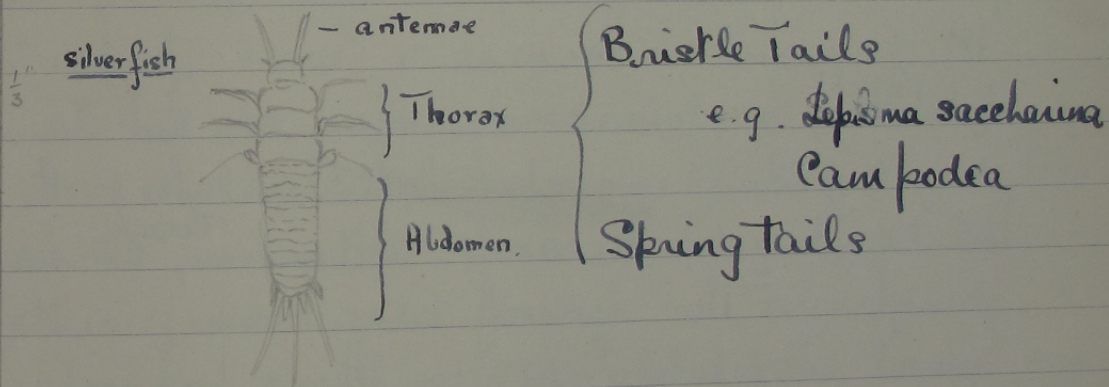 antennae
silverfish
1/3"
Thorax
Abdomen.
Bristle Tails
e.g. Lepisma saccharina
Campodea
Spring Tails